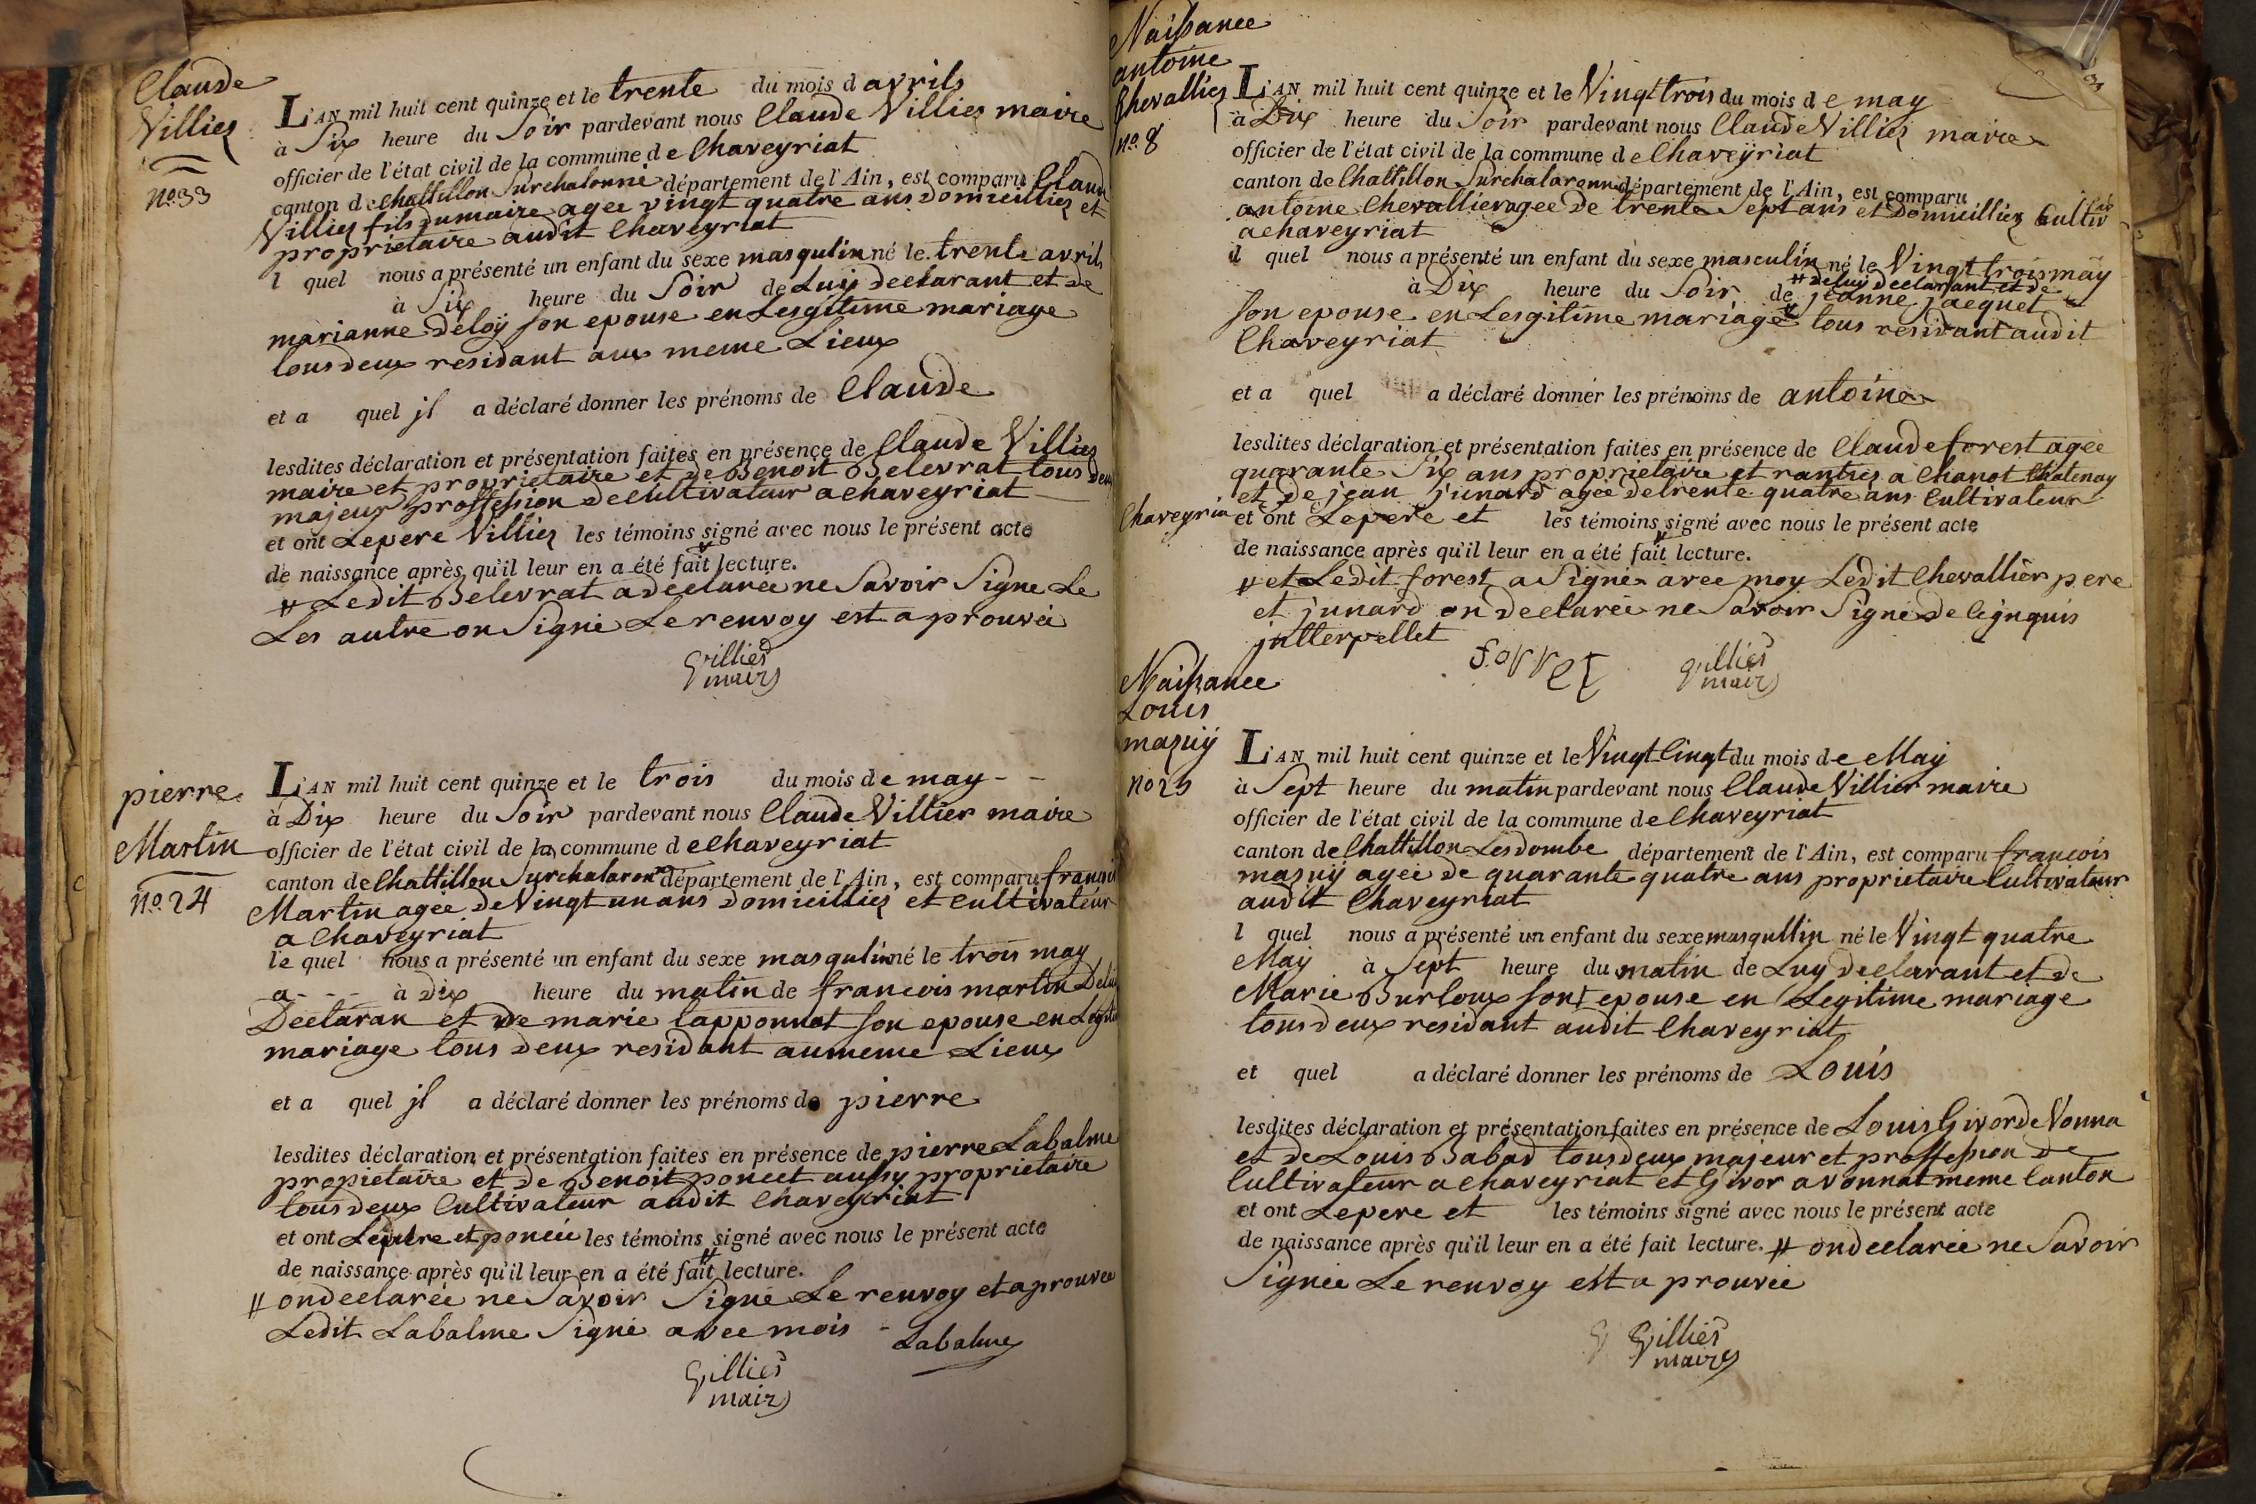 Claude
Villier
no. 33
L'AN mil huit cent quinze et le trente du mois d avrils
à Six heure du Soir pardevant nous Claude Villier maire
officier de l'état civil de la commune de Chaveyriat
canton de chattillon Surchalonne département de l'Ain, est comparu Claude
Villier fils dumaire agee vingt quatre ans Domicillier et
proprietaire audit Chaveyriat
l quel nous a présenté un enfant du sexe masqulin né le trente avril
à Six heure du Soir de Luy declarant et de
marianne Deloÿ son epouse en Lesgitime mariage
tous deux residant aux meme Lieux
et a quel jl a déclaré donner les prénoms de Claude
lesdites déclaration et présentation faites en présence de Claude Villier
maire et proprietaire et de Benoit Belevrat tous deux
majeur proffession de Cultivatair a chaveyriat
et ont Lepere Villier les témoins signé avec nous le présent acte
de naissance après qu'il leur en a été fait lecture.
# Ledit Belevrat a declarée ne Savoir Signe Le
Les autre on Signé Le renvoy est a prouvée
Villier
maire
pierre
Martin
no. 24
L'AN mil huit cent quinze et le trois du mois de may - -
à Dix heure du Soir pardevant nous Claude Villier maire
officier de l'état civil de la commune de Chaveyriat
canton de Chattillon Surchalaronne département de l'Ain, est comparu francois
Martin agee de Vingt un ans Domicillier et Cultivateur
a Chaveyriat
le quel nous a présenté un enfant du sexe masqulin né le trois may
a - - - à dix heure du matin de francois martin
Declaran et de marie tapponnat son epouse en
mariage tous deux residant aumeme Lieux
et a quel jl a déclaré donner les prénoms de pierre
lesdites déclaration et présentation faites en présence de pierre Labalme
propietaire et de Benoit poncet aussy proprietaire
tous deux Cultivateur audit Chaveyriat
et ont Lepere et poncée les témoins signé avec nous le présent acte
de naissance après qu'il leur en a été fait lecture.
# ondeclarée ne Savoir Signé Le renvoy et aprouvee
Ledit Labalme Signé avec mois - Labalme
Villier
maire
Naissance
antoine
Chevallier
no. 8
L'AN mil huit cent quinze et le Vingt trois du mois de may
à Dix heure du Soir pardevant nous Claude Villier maire
officier de l'état civil de la commune de Chaveÿriat
canton de Chattillon Surchalaronne département de l'Ain, est comparu
antoine Chevallier agee De trente Sept ans et Domicillier Cultiv
a chaveyriat
il quel nous a présenté un enfant du sexe masculin né le Vingt trois maÿ
# deluy declarant et de
à Dix heure du Soir de jeanne jacquet
son epouse en Lesgitime mariage # tous residant audit
Chaveyriat
et a quel a déclaré donner les prénoms de antoine
lesdites déclaration et présentation faites en présence de Claude forest agée
quarante Six ans proprietaire et rantier a Chanot Chatenay
et de jean junard agee de trente quatre ans Cultivateur
Chaveyria
et ont Lepere et les témoins signé avec nous le présent acte
de naissance après qu'il leur en a été fait lecture.
# et Ledit forest a Signe avec moy Ledit Chevallier pere
et junard on declarée ne Savoir Signé de
jntterpellet
Villier
maire
Naissance
Louis
mazuÿ
no 25
L'AN mil huit cent quinze et le Vingt Cinqt du mois de Maÿ
à Sept heure du matin pardevant nous Claude Villier maire
officier de l'état civil de la commune de Chaveyriat
canton de Chattillon Lesdombe département de l'Ain, est comparu francois
mazuy agee de quarante quatre ans proprietaire Cultivateur
audit Chaveyriat
l quel nous a présenté un enfant du sexe masqullin né le Vingt quatre
Maÿ à Sept heure du matin de Luy declarant et de
Marie Burloux son epouse en Legitime mariage
tous deux residant audit Chaveyriat
et quel a déclaré donner les prénoms de Louis
lesdites déclaration et présentation faites en présence de Louis Givorde Vonna
et de Louis Babad tous deux majeur et proffession de
Cultivateur a chaveyriat et Givor a vonnat meme Canton
et ont Lepere et les témoins signé avec nous le présent acte
de naissance après qu'il leur en a été fait lecture. # ondeclarée ne Savoir
Signée Le renvoy est a prouvée
Villier
maire